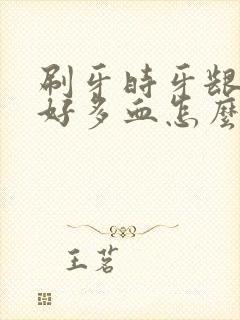 刷牙時牙龈
好多血怎麽
王茗